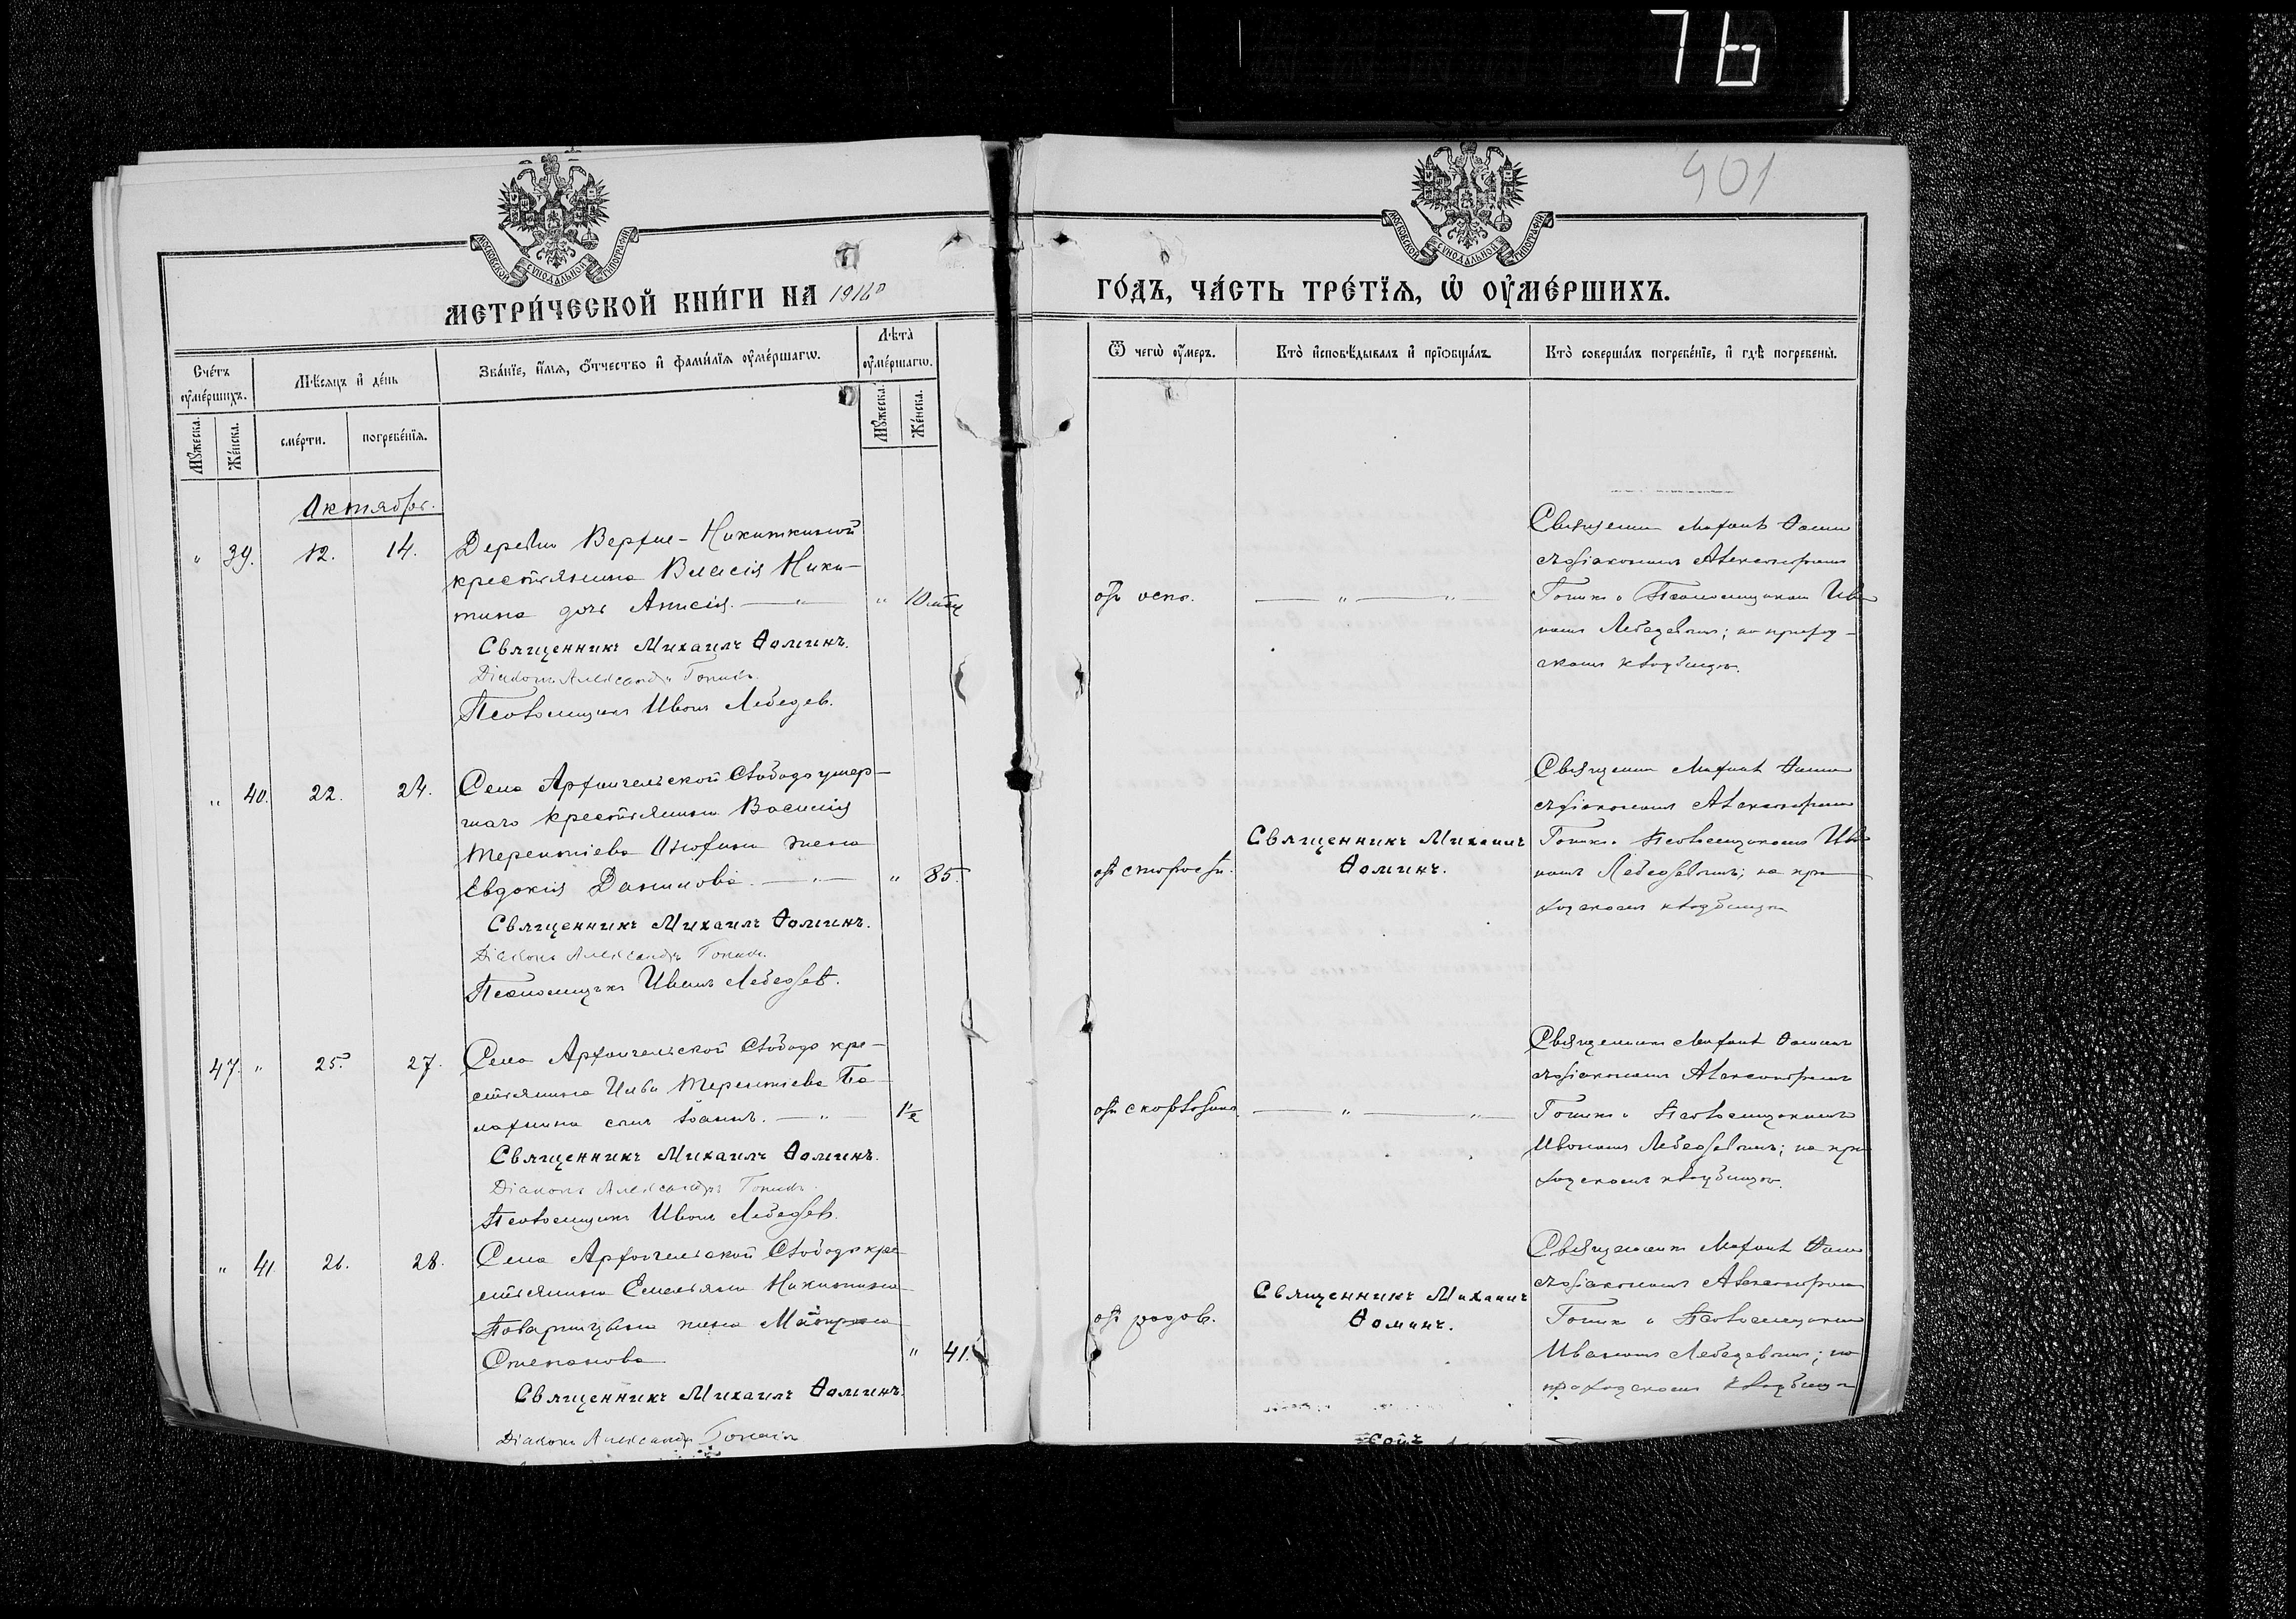 76
901
МОСКОВСКОЙ СѴНОДАЛЬНОЙ ТИПОГРАФІИ
МОСКОВСКОЙ СѴНОДАЛЬНОЙ ТИПОГРАФІИ
МЕТРИ́ЧЕСКОЙ КНИ́ГИ НА 1916
ГО́ДЪ, ЧА́СТЬ ТРЕ́ТЇѦ, Ѡ҆ ОУ҆МЕ́РШИХЪ.
Сче́тъ оу҆ме́ршихъ.
Мꙋ́жеска.
Же́нска.
Мѣ́сѧцъ и҆ де́нь
сме́рти.
погребе́нїѧ.
Зва́нїе, и҆́мѧ, ѻ҆́тчество и҆ фами́лїѧ оу҆ме́ршагѡ.
Лѣта̀ оу҆ме́ршагѡ.
Мꙋ́жеска.
Же́нска.
Ѿ чегѡ̀ оу҆́меръ.
Кто̀ и҆сповѣ́дывалъ и҆ прїѡбща́лъ
Кто̀ соверша́лъ погребе́нїе, и҆ гдѣ̀ погребены̀.
Октябрь.
" 39. 12. 14. Деревни Верхне-Никиткиной
крестьянина Власія Ники-
тина дочь Анисія. — " — " 10 мѣс
Священникъ Михаилъ Ѳоминъ.
Діаконъ Александръ
Псаломщикъ Иванъ Лебедев.
отъ оспы. — " — " —
Священник Михаил Ѳомин
съ діакономъ Александромъ
и Псаломщиком Ива
номъ Лебедевымъ; на приход-
скомъ кладбищѣ.
" 40. 22. 24. Села Архангельской Слободы умер-
шаго крестьянина Василія
Терентіева жена
Евдокія Данилова. — " — " 85.
Священникъ Михаилъ Ѳоминъ.
Діаконъ Александръ
Псаломщикъ Иванъ Лебедев.
отъ старости.
Священникъ Михаилъ
Ѳоминъ.
Священник Михаил Ѳомин
съ діакономъ Александромъ
и Псаломщикомъ Ива
номъ Лебедевымъ; на при
ходскомъ кладбищѣ
47. " 25. 27. Села Архангельской Слободы кре-
стьянина Терентіева Ба
лахнина сынъ Іоаннъ. — " — 1½
Священникъ Михаилъ Ѳоминъ.
Діаконъ Александръ
Псаломщикъ Иванъ Лебедев.
— " — " —
Священникъ Михаил Ѳоминъ
съ діакономъ Александромъ
и Псаломщикомъ
Иваномъ Лебедевымъ; на при
ходскомъ кладбищѣ.
" 41 26. 28. Села Архангельской Слободы кре-
стьянина Емельяна Никитина
жена
Степанова " 41.
Священникъ Михаилъ Ѳоминъ.
Діаконъ Александръ
отъ родов.
Священникъ Михаилъ
Ѳоминъ.
Священникъ Михаил Ѳомин
съ діакономъ Александром
и Псаломщиком
Иваномъ Лебедевымъ; на
приходскомъ кладбищѣ